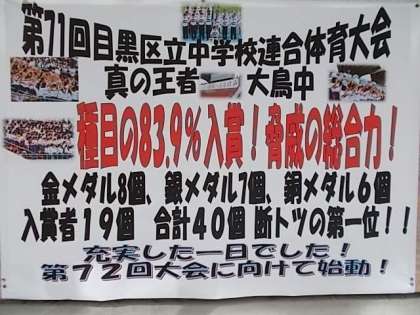 第71回目黒区立中学校連合体育大会
真の王者 大鳥中
種目の83.9%入賞!脅威の総合力!
金メダル8個、銀メダル7個、銅メダル6個
入賞者19個 合計40個 断トツの第一位!!
充実した一日でした!
第72回大会に向けて始動!